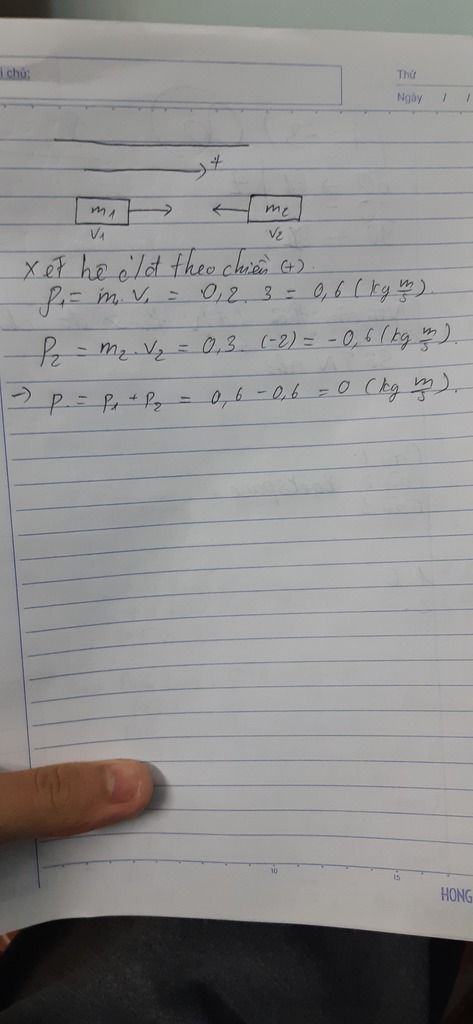 i chú:
Thứ
Ngày / /
+
m1 m2
v1 v2
Xét hệ c/đ theo chiều (+).
p1 = m. v1 = 0,2 . 3 = 0,6 (kg m/s).
P2 = m2 . v2 = 0,3 . (-2) = -0,6 (kg m/s).
→ p = p1 + p2 = 0,6 - 0,6 = 0 (kg m/s).
10
15
HONG